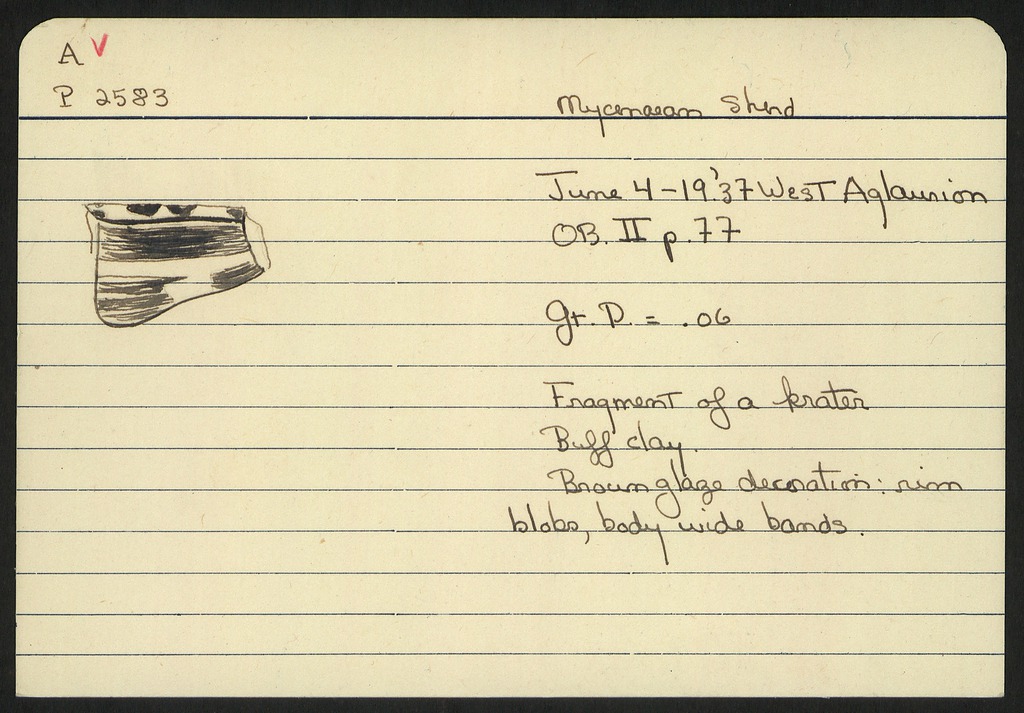 A V
P 2583
Mycenaean Sherd
June 4-19.'37 West Aglaurion
OB. II p.77
Gr. P. = .06
Fragment of a krater
Buff clay.
Brown glaze decoration: rim
blobs, body wide bands.